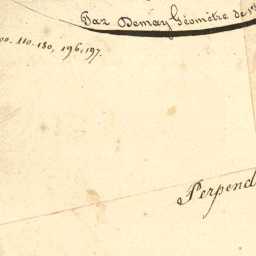 Par Demay Géomètre de 1re
00. 110. 180, 196, 197.
Perpend